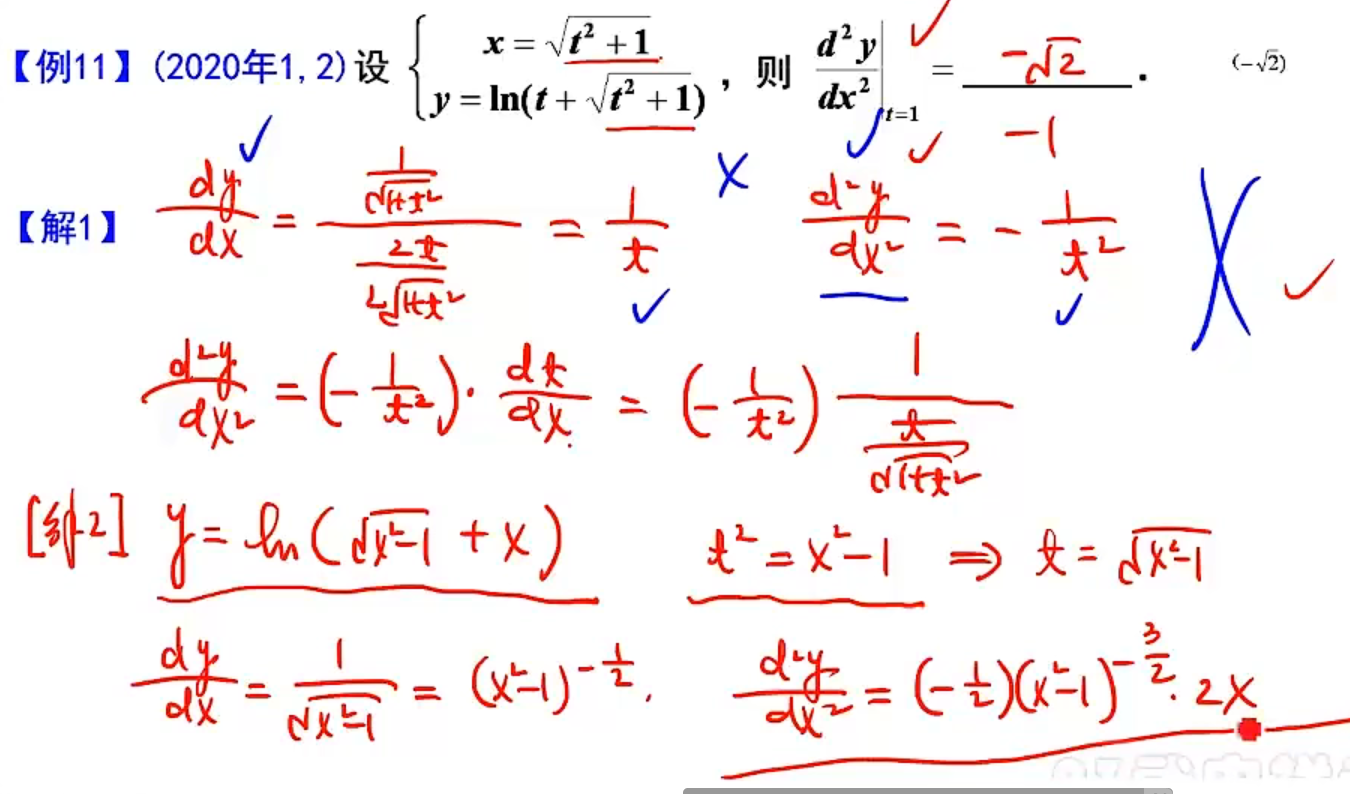 【例11】(2020年1,2)设 { x = √(t² + 1) , y = ln(t + √(t² + 1)) , 则 d²y/dx² |t=1 = -√2 . (-√2)
-1
【解1】 dy/dx = (1/√(1+t²))/(2t/(2√(1+t²))) = 1/t d²y/dx² = - 1/t²
d²y/dx² = (- 1/t²) · dt/dx = (- 1/t²) 1/(t/√(1+t²))
[解2] y = ln(√(x²-1) + x) t² = x² - 1 ⇒ t = √(x²-1)
dy/dx = 1/√(x²-1) = (x²-1)^(-1/2) . d²y/dx² = (-1/2)(x²-1)^(-3/2) · 2x